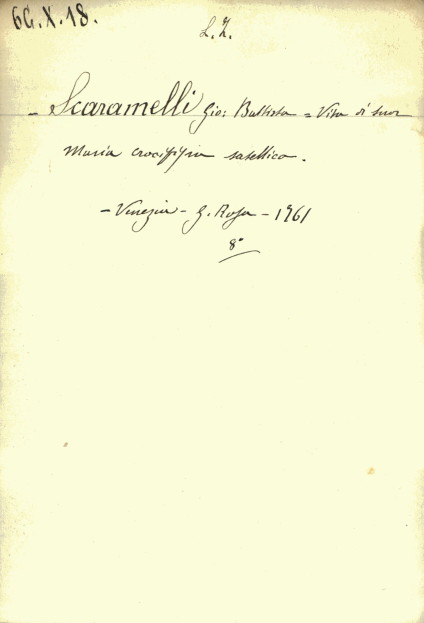 6G.X.18.
L.Z.
- Scaramelli Gio: Battista = Vita di suor
Maria crocifissa satellica.
- Venezia - G. Rosa - 1761
8°